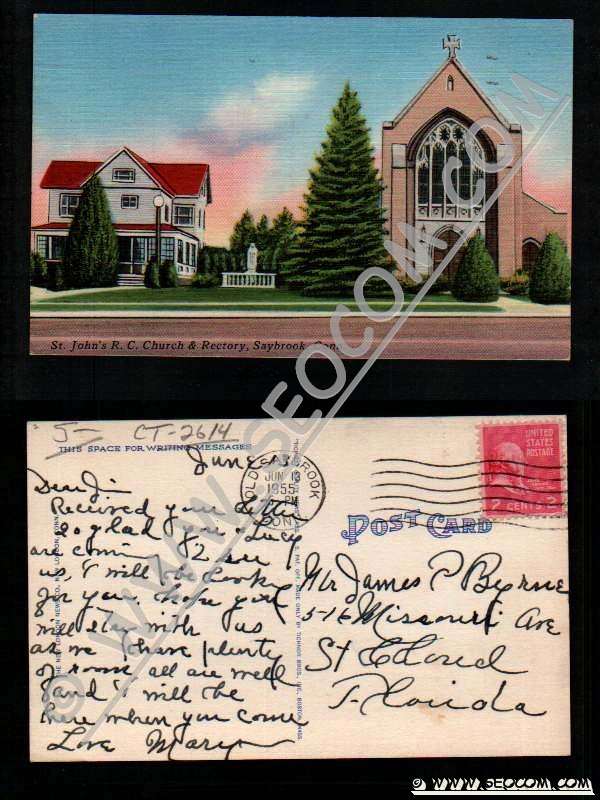 St. John's R. C. Church & Rectory, Saybrook, Con.
© WWW.SEOCOM.COM
5— CT-2614
THIS SPACE FOR WRITING MESSAGES
June 13
OLD SAYBROOK
JUN 13
1955
PM
CONN
UNITED
STATES
POSTAGE
2 CENTS 2
Dear Jim
Received your letter
so glad you & Lucy
are comin to see
us, I will be looking
for you, hope you
will stay with us
as we have plenty
of room all are well
and I will be
here when you come
Love Mary
POST CARD
Mr James P Byrne
516 Missouri Ave
St Cloud
Florida
THE NEW LONDON NEWS CO., NEW LONDON, CONN.
TICHNOR BROS., INC., BOSTON, MASS.
© WWW.SEOCOM.COM